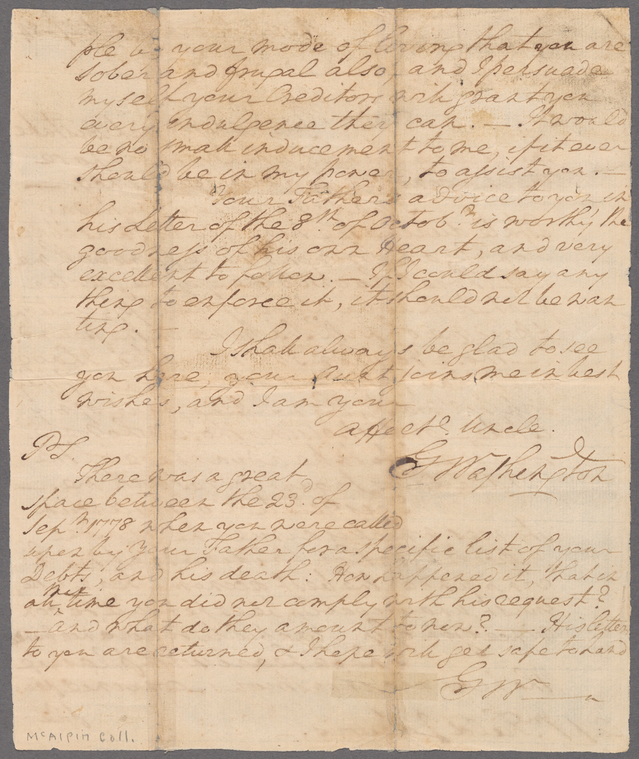 ple by your mode of living that you are
sober and frugal also, and I persuade
myself your Creditors will grant you
every indulgence they can. — It would
be no small inducement to me, if it ever
should be in my power, to assist you. —
Your Fathers advice to you in
his Letter of the 8th of Octobr is worthy the
goodness of his own heart, and very
excellent to follow. — If I could say any
thing to enforce it, it should not be wan
ting. —
I shall always be glad to see
you here, your Aunt joins me in best
wishes, and I am your
affecte Uncle.
PS
G Washington
There was a great
space between the 23d of
Sepr 1778 when you were called
upon by your Father for a specific list of your
Debts, and his death: How happened it, that in
all this time you did not comply with his request?
— and what do they amount to now? — His letters
to you are returned, & I hope will get safe to hand
GW —
McAlpin Coll.